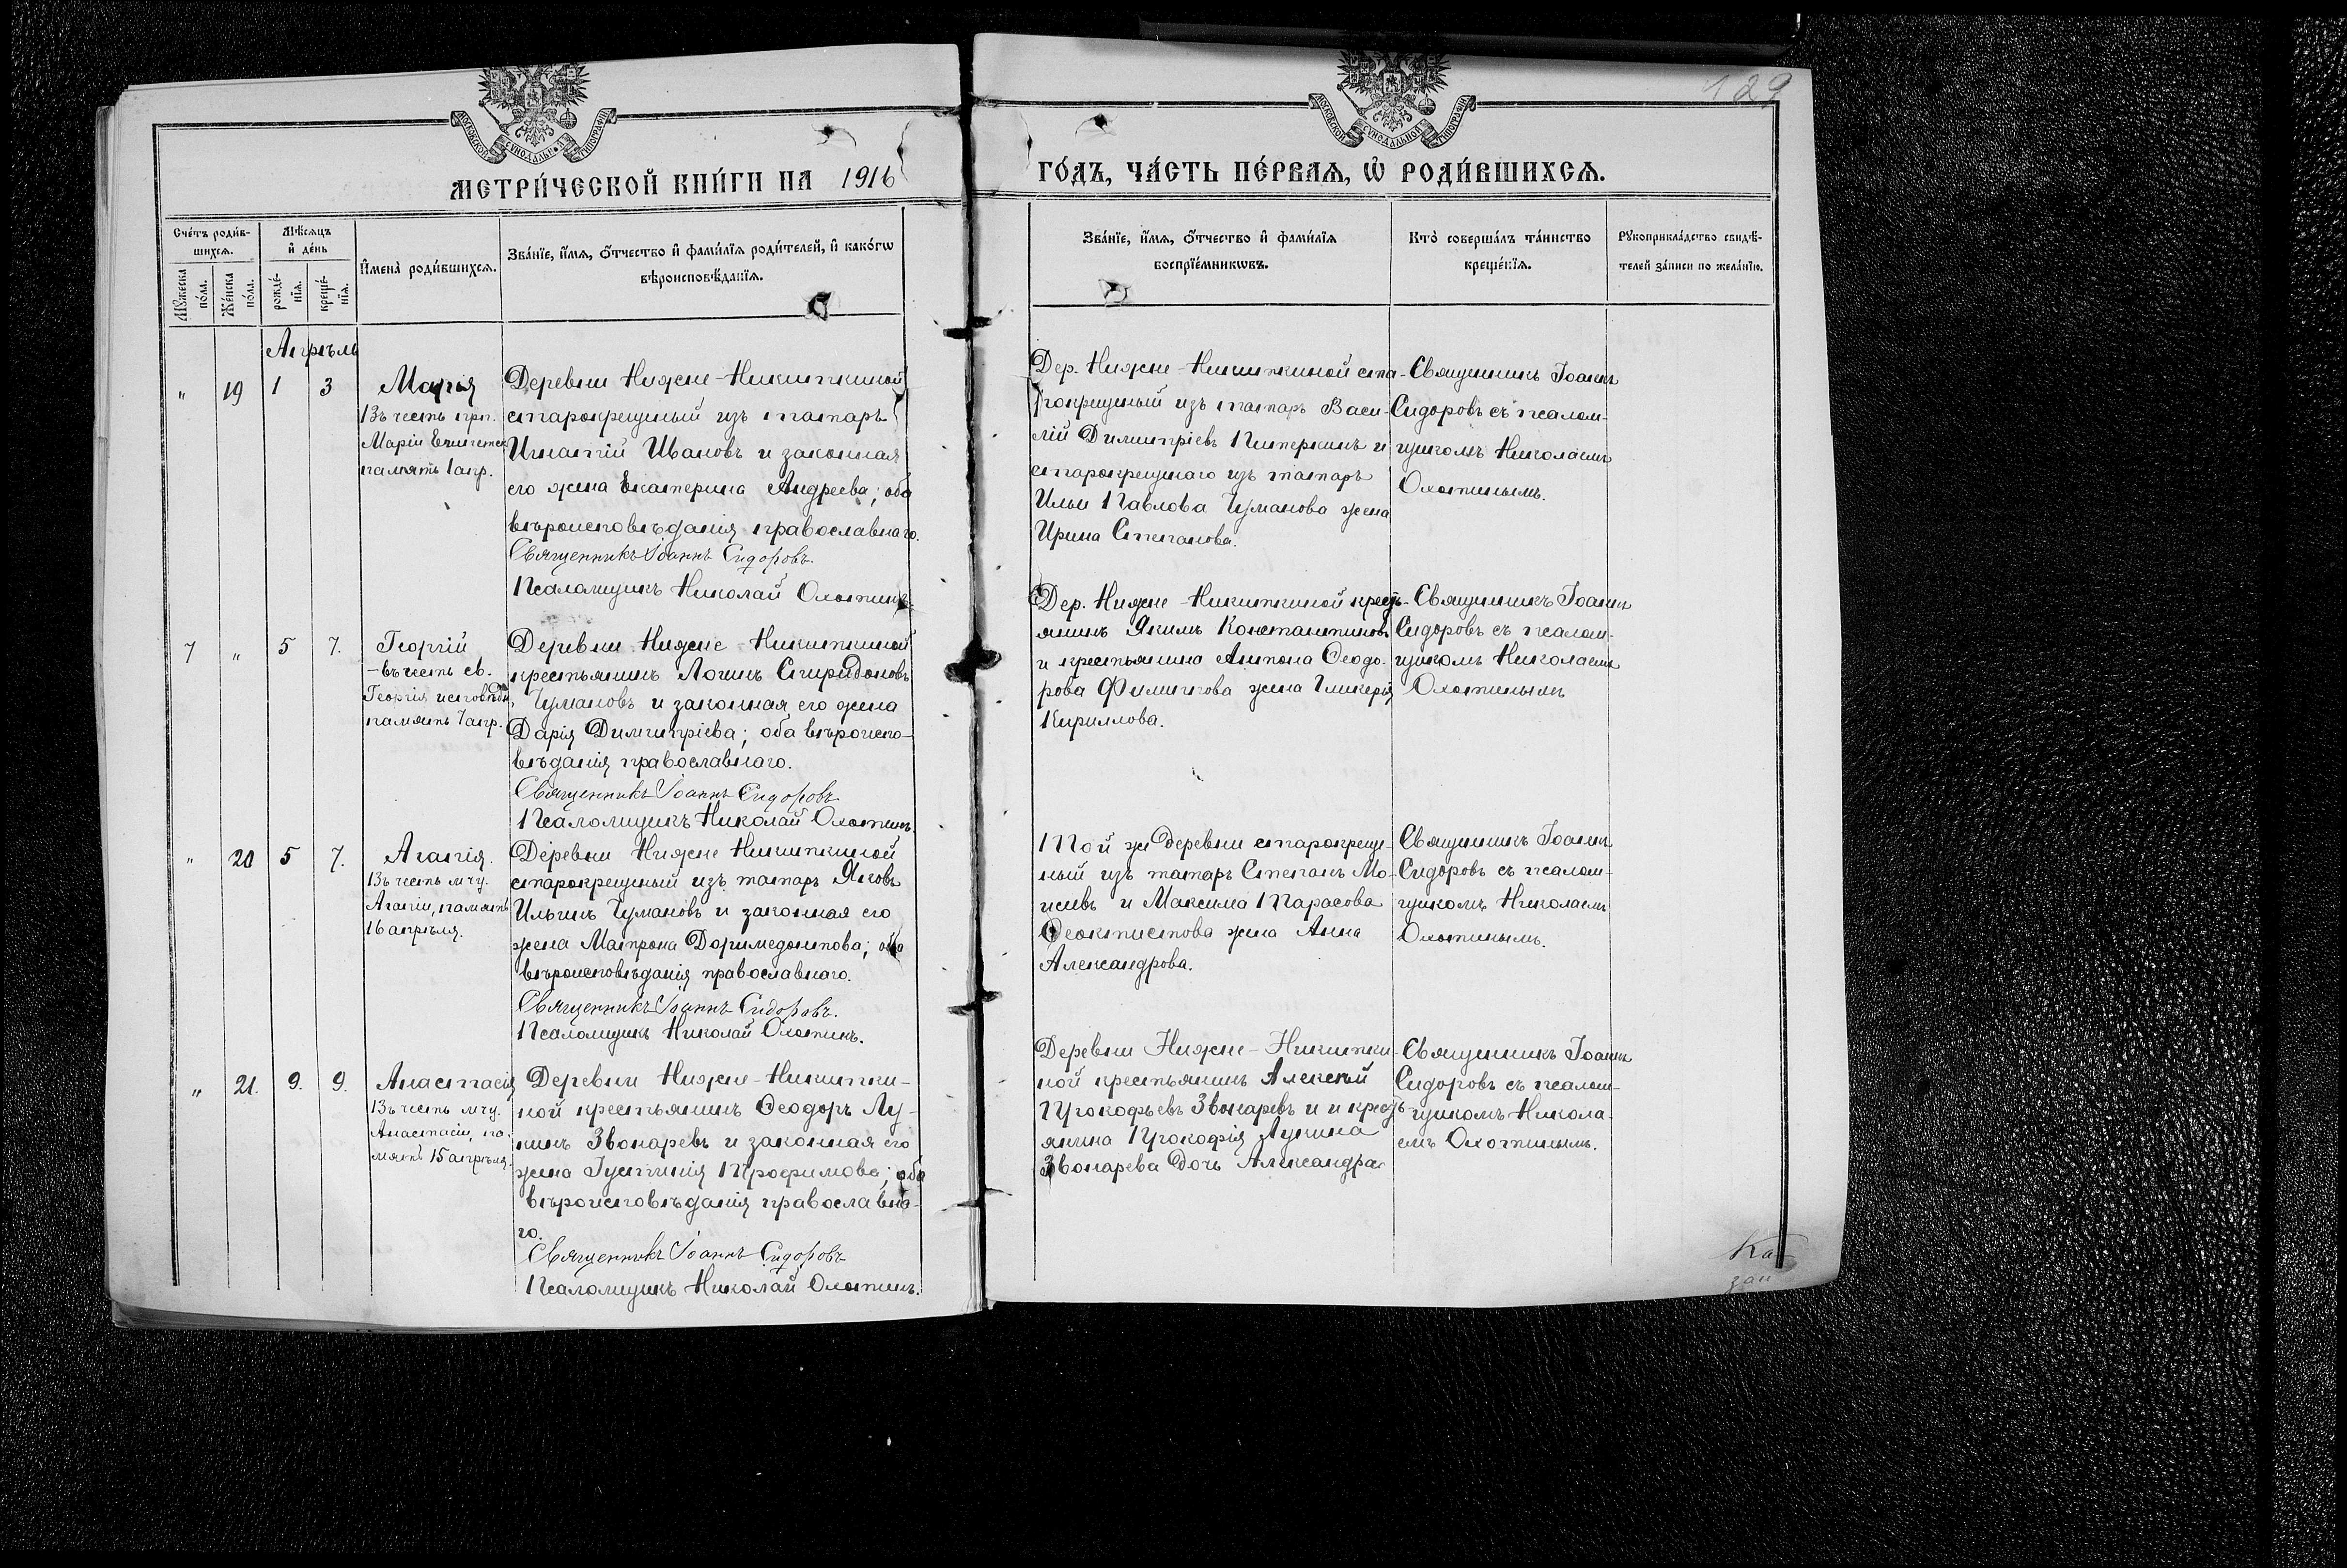 129
МОСКОВСКОЙ СѴНОДАЛЬНОЙ ТИПОГРАФІИ
МОСКОВСКОЙ СѴНОДАЛЬНОЙ ТИПОГРАФІИ
МЕТРИ́ЧЕСКОЙ КНИ́ГИ НА 1916
ГО́ДЪ, ЧА́СТЬ ПЕ́РВАѦ, Ѡ҆ РОДИ́ВШИХСѦ.
Сче́тъ роди́в-
шихсѧ.
Мꙋ́жеска по́ла.
Же́нска по́ла.
Мѣ́сѧцъ
и҆ де́нь
рожде́-нїѧ.
креще́-нїѧ.
И҆мена̀ роди́вшихсѧ.
Зва́нїе, и҆́мѧ, ѻ҆́тчество и҆ фами́лїѧ роди́телей, и҆ како́гѡ
вѣроисповѣ́данїѧ.
Зва́нїе, и҆́мѧ, ѻ҆́тчество и҆ фами́лїѧ
воспрїе́мникѡвъ.
Кто̀ соверша́лъ та́инство
креще́нїѧ.
Рꙋкоприкла́дство свидѣ́-
телей за́писи по жела́нїю.
Апрѣль
" 19 1 3
Марія
Въ честь прп.
Маріи Египетск.
память 1 апр.
Деревни Нижне-Никиткиной
старокрещеный изъ татаръ
Игнатій Ивановъ и законная
его жена Екатерина Андреева; оба
вѣроисповѣданія православнаго.
Священникъ Іоаннъ Сидоровъ.
Псаломщикъ Николай Охотинъ.
Дер. Нижне-Никиткиной ста-
рокрещеный изъ татаръ Васи-
лій Димитріевъ Питеркинъ и
старокрещенаго изъ татаръ
Ильи Павлова Чуманова жена
Ирина Степанова.
Священникъ Іоаннъ
Сидоровъ съ псалом-
щикомъ Николаемъ
Охотинымъ.
7 " 5 7.
Георгій
-въ честь св.
Георгія исповѣдн,
память 7 апр.
Деревни Нижне-Никиткиной
крестьянинъ Логинъ Спиридоновъ
Чумановъ и законная его жена
Дарія Димитріева; оба вѣроиспо-
вѣданія православнаго.
Священникъ Іоаннъ Сидоровъ
Псаломщикъ Николай Охотинъ.
Дер. Нижне-Никиткиной кресть-
янинъ Якимъ Константиновъ
и крестьянина Антона Ѳеодо-
рова Филиппова жена Гликерія
Кириллова.
Священникъ Іоаннъ
Сидоровъ съ псалом-
щикомъ Николаемъ
Охотинымъ
" 20 5 7.
Агапія.
Въ честь мчц.
Агапіи, память
16 апрѣля.
Деревни Нижне Никиткиной
старокрещеный изъ татаръ Яковъ
Ильинъ Чумановъ и законная его
жена Матрона Доримедонтова; оба
вѣроисповѣданія православнаго.
Священникъ Іоаннъ Сидоровъ.
Псаломщикъ Николай Охотинъ.
Той же деревни старокреще-
ный изъ татаръ Степанъ Мо-
исеевъ и Максима Тарасова
Ѳеоктистова жена Анна
Александрова.
Священникъ Іоаннъ
Сидоровъ съ псалом-
щикомъ Николаемъ
Охотинымъ.
" 21. 9. 9.
Анастасія
Въ честь мчц.
Анастасіи, па-
мять 15 апрѣля.
Деревни Нижне-Никитки-
ной крестьянинъ Ѳеодоръ Лу-
кинъ Звонаревъ и законная его
жена Іустинія Трофимова; оба
вѣроисповѣданія православна-
го.
Священникъ Іоаннъ Сидоровъ
Псаломщикъ Николай Охотинъ.
Деревни Нижне-Никитки-
ной крестьянинъ Алексѣй
Прокофьевъ Звонаревъ и и кресть-
янина Прокофія Лукина
Звонарева дочь Александра
Священникъ Іоаннъ
Сидоровъ съ псалом-
щикомъ Никола-
емъ Охотинымъ.
Ка-
зан